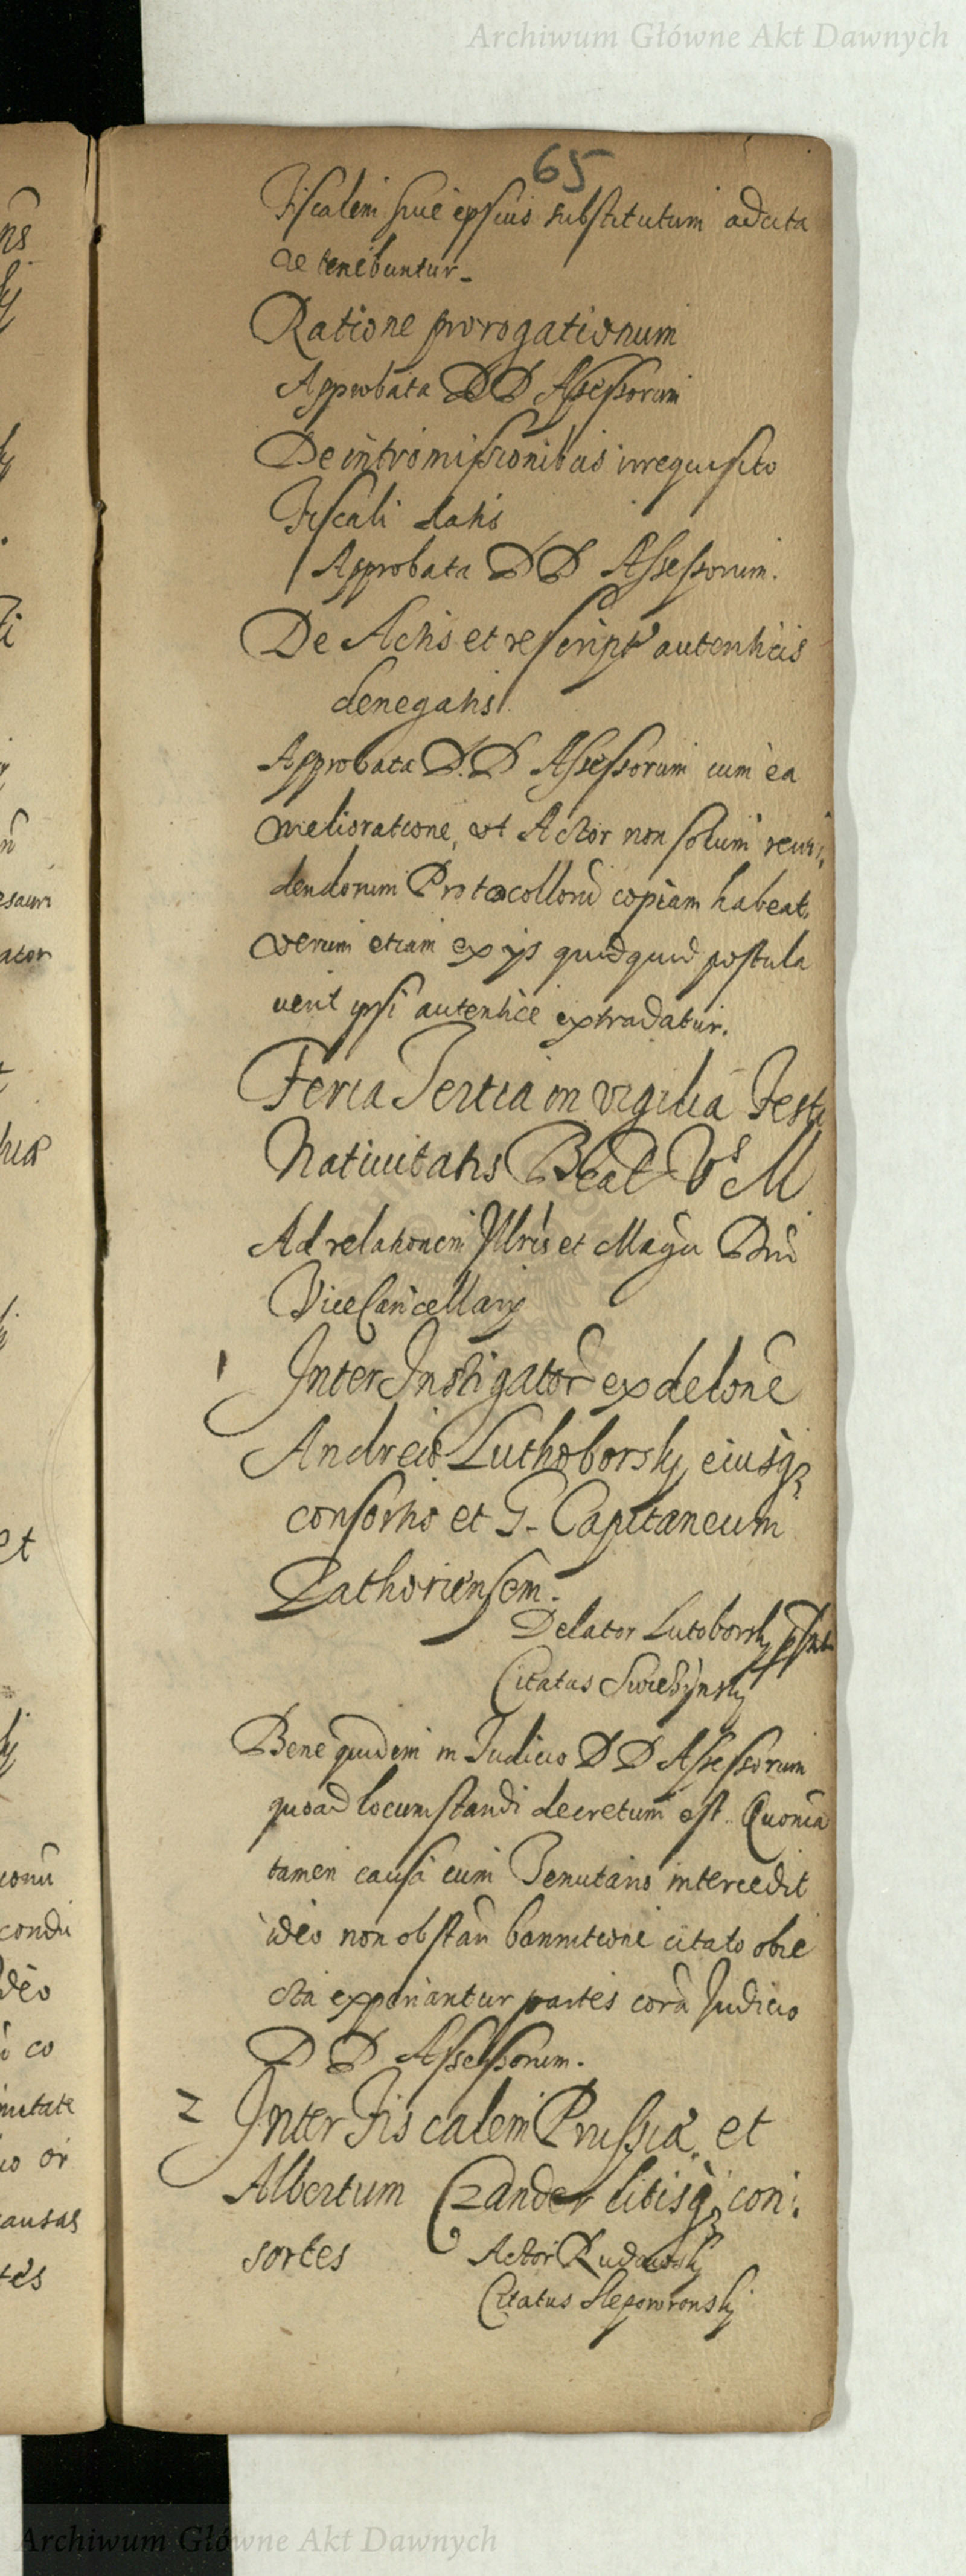 Archiwum Główne Akt Dawnych
65
Fiscalem sive ipsius substitutum adcita
ae tenebuntur
Ratione prorogationum
Approbata DD Assessorum
De intromissionibus irrequisito
Fiscali datis
Approbata DD Assessorum.
De Actis et rescript autenticis
denegatis
Approbata D.D Assessorum cum ea
melioratione, ut Actor non solum revi
dendorum Protocollorū copiam habeat,
verum etiam ex ijs quidquid postula
verit ipsi autentice extradatur.
Feria Tertia in vigilia Festi
Nativitatis Beat Vs M
Ad relationem Illris et Magn Dni
ViceCancellarij
1 Inter Instigatorē ex delonē
Andreis Luthoborsky eiusq
consortis et G. Capitaneum
Zathoriensem.
Delator Lutoborsky
Citatus
Bene quidem in Judicio D D Assessorum
quoad locum standi decretum est. Quoniā
tamen causa cum Tenutario intercedit
ideo non obstan bannitione citato obie
cta experiantur partes corā Judicio
D D Assessorum.
2 Inter Fiscalem Prussiæ et
Albertum Czander litisq con
sortes Actor Rudawsky
Citatus Slepowronsky
ns
esaum
ator
et
condi
ideo
co
mutate
causas
tes
Archiwum Główne Akt Dawnych